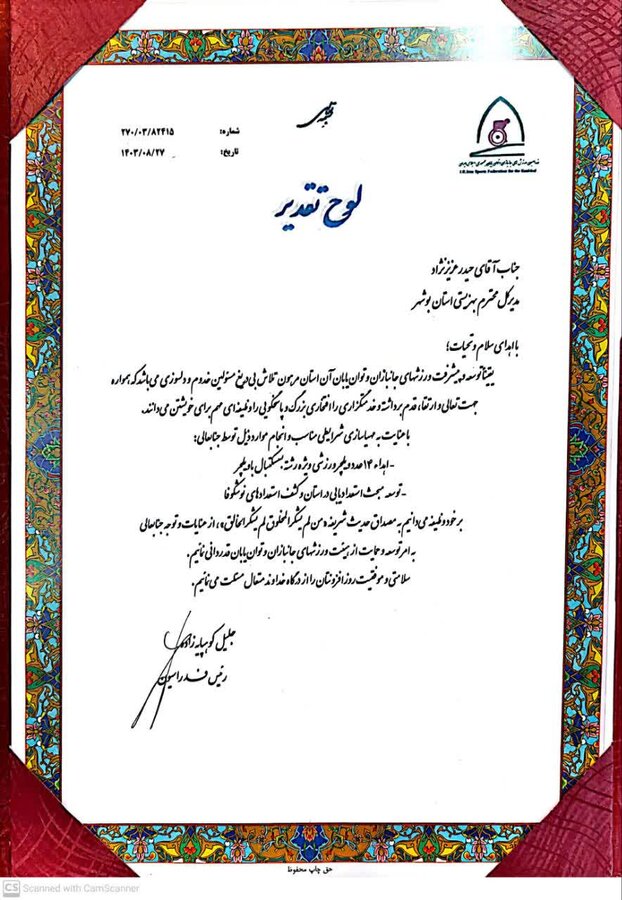 بسمه تعالی
شماره: ۲۷۰/۰۳/۸۲۴۱۵
تاریخ: ۱۴۰۳/۰۸/۲۷
I.R.Iran Sports Federation for the Disabled
لوح تقدیر
جناب آقای حیدر عزیزنژاد
مدیرکل محترم بهزیستی استان بوشهر
با اهدای سلام و تحیات؛
یقینا توسعه و پیشرفت ورزشهای جانبازان و توان یابان آن استان مرهون تلاش بی دریغ مسئولین خدوم و دلسوزی می باشد که همواره
جهت تعالی و ارتقاء قدم برداشته و خدمتگزاری را افتخاری بزرگ و پاسخگویی را وظیفه ای مهم برای خویشتن می دانند.
با عنایت به مهیاسازی شرایطی مناسب و انجام موارد ذیل توسط جنابعالی:
-اهداء ۱۴ عدد ویلچر ورزشی ویژه رشته بسکتبال با ویلچر
-توسعه مبحث استعدادیابی در استان و کشف استعدادهای نوشکوفا
بر خود وظیفه می دانیم به مصداق حدیث شریفه «من لم یشکر المخلوق لم یشکر الخالق»، از عنایات و توجه جنابعالی
به امر توسعه و حمایت از هیئت ورزشهای جانبازان و توان یابان قدردانی نمائیم.
سلامتی و موفقیت روزافزونتان را از درگاه خداوند متعال مسئلت می نمائیم.
جلیل کوهپایه زاده
رئیس فدراسیون
حق چاپ محفوظ
CS Scanned with CamScanner